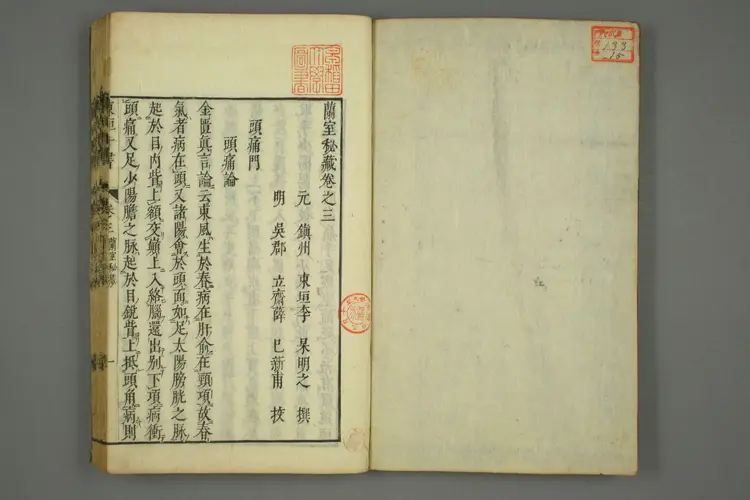 蘭室秘藏卷之三
元 鎮州 東垣李 杲明之 撰
明 吳郡 立齋薛 已新甫 挍
頭痛門
頭痛論
金匱眞言論云東風生於春病在肝俞在頸項故春
氣者病在頭又諸陽會於頭面如足太陽膀胱之脉
起於目內眥上額交巓上入絡腦還出別下項病衝
頭痛又足少陽膽之脉起於目銳眥上抵頭角病則
卷三蘭室秘藏
一
早稻田
大學
圖書
133
15